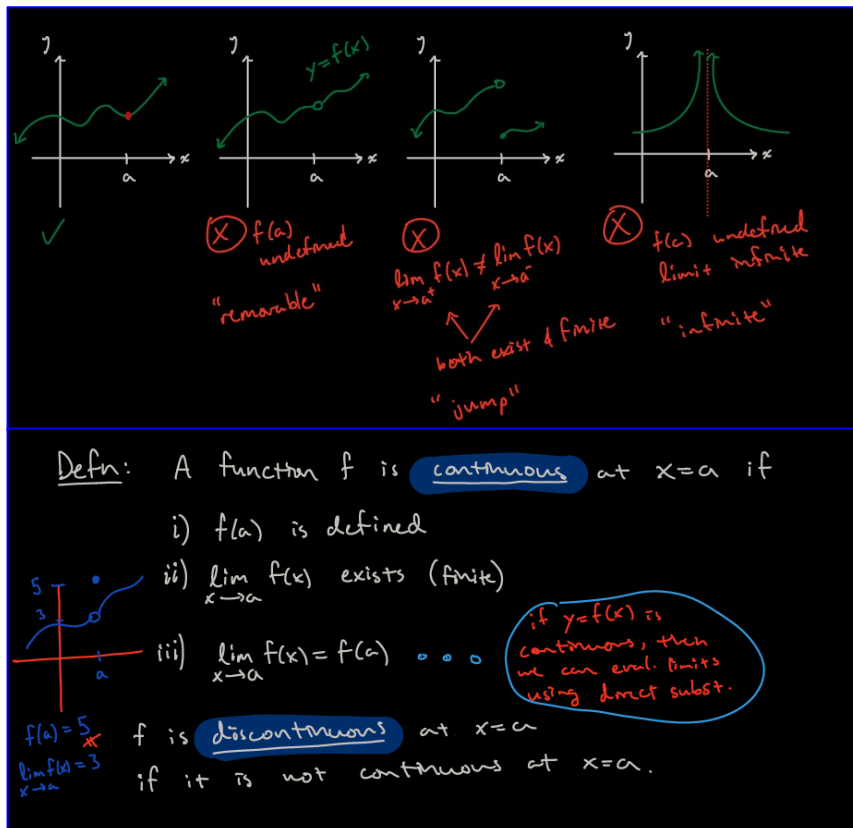 y
y
y
y
y=f(x)
x
x
x
x
a
a
a
a
✓
X f(a)
undefined
"removable"
X
lim f(x) ≠ lim f(x)
x→a⁺ x→a⁻
both exist & finite
"jump"
X
f(a) undefined
limit infinite
"infinite"
Defn: A function f is continuous at x=a if
i) f(a) is defined
ii) lim f(x) exists (finite)
x→a
iii) lim f(x) = f(a)
x→a
if y=f(x) is
continuous, then
we can eval. limits
using direct subst.
5
3
a
f(a)=5
lim f(x)=3
x→a
f is discontinuous at x=a
if it is not continuous at x=a.